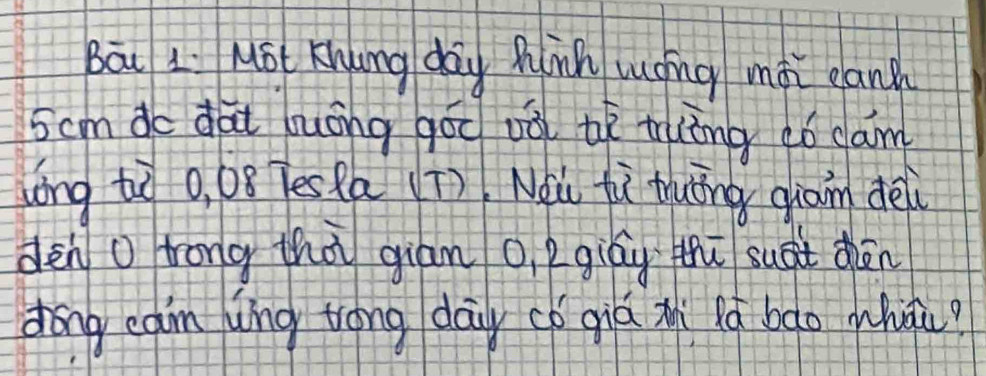 Bài 1: Một khung dây hình vuông mỗi cạnh
5cm đc đặt vuông góc với từ trường có cảm
ứng từ 0,08 Tesla (T). Nếu từ trường giảm đều
đến 0 trong thời gian 0,2 giây thì suất điện
động cảm ứng trong dây có giá trị là bao nhiêu?